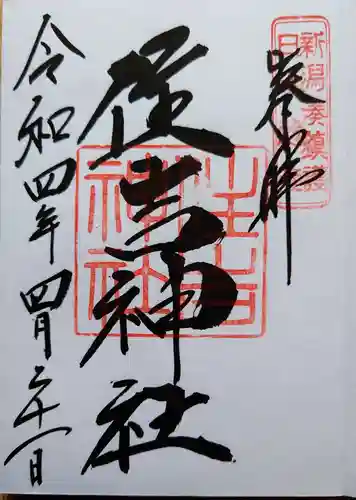 奉拝
新潟湊鎮護
住吉神社
住吉神社
令和四年四月二十一日